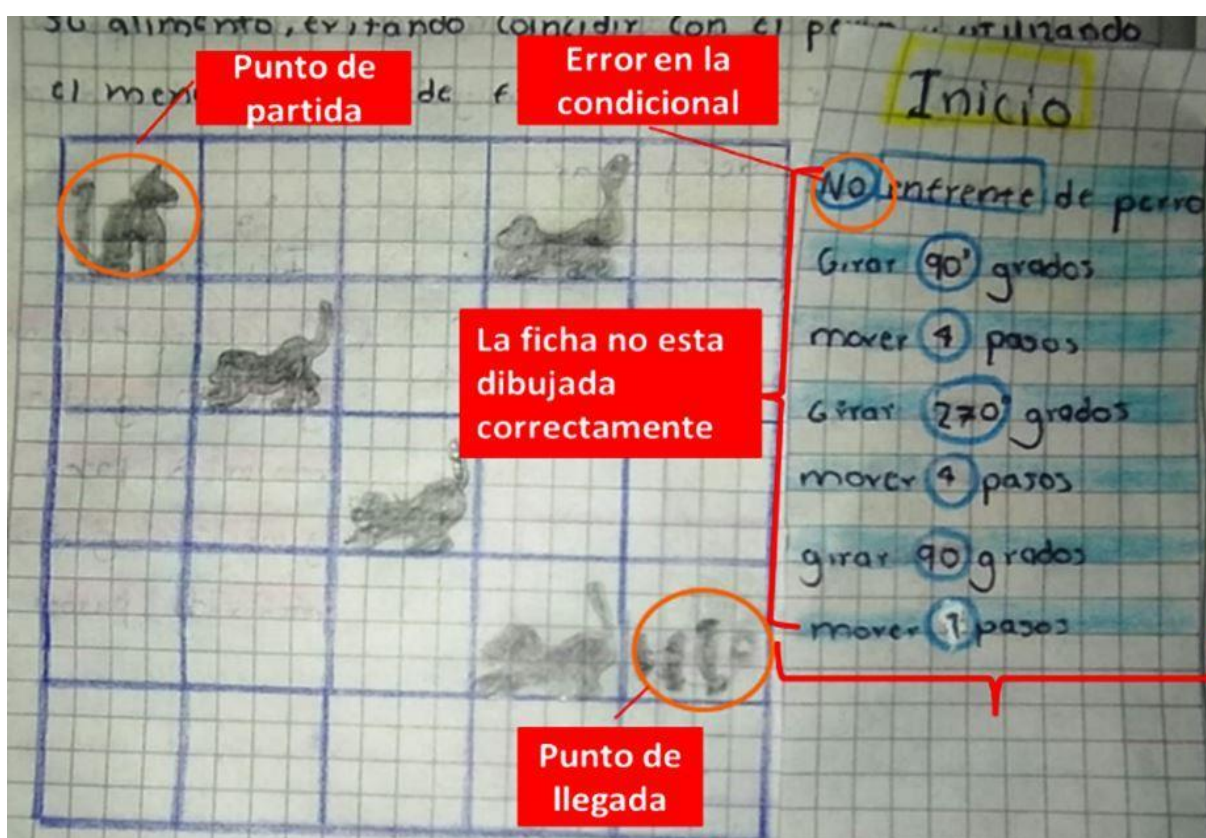 su alimento, evitando coincidir con el utilizando
el de
Punto de
partida
Error en la
condicional
La ficha no esta
dibujada
correctamente
Punto de
llegada
Inicio
NO enfrente de perro
Girar 90° grados
mover 4 pasos
Girar 270° grados
mover 4 pasos
girar 90 grados
mover 1 pasos